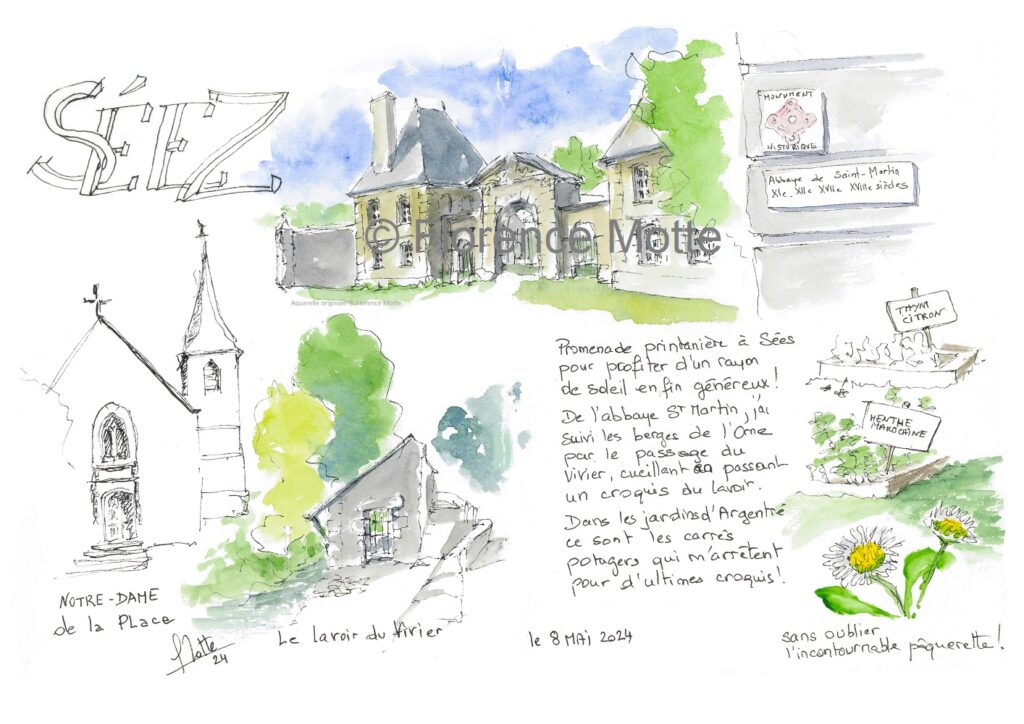 SÉEZ
MONUMENT
HISTORIQUE
Abbaye de Saint-Martin
XIe. XIIe XVIIe XVIIIe siècles
© Florence Motte
Aquarelle originale © Florence Motte
THYM
CITRON
Promenade printanière à Sées
pour profiter d'un rayon
de soleil enfin généreux !
De l'abbaye St Martin, j'ai
suivi les berges de l'Orne
par le passage du
Vivier, cueillant en passant
un croquis du lavoir.
Dans les jardins d'Argentré
ce sont les carrés
potagers qui m'arrêtent
pour d'ultimes croquis !
MENTHE
MAROCAINE
NOTRE-DAME
de la PLace
Motte
24
Le lavoir du Vivier
le 8 MAI 2024
sans oublier
l'incontournable pâquerette !